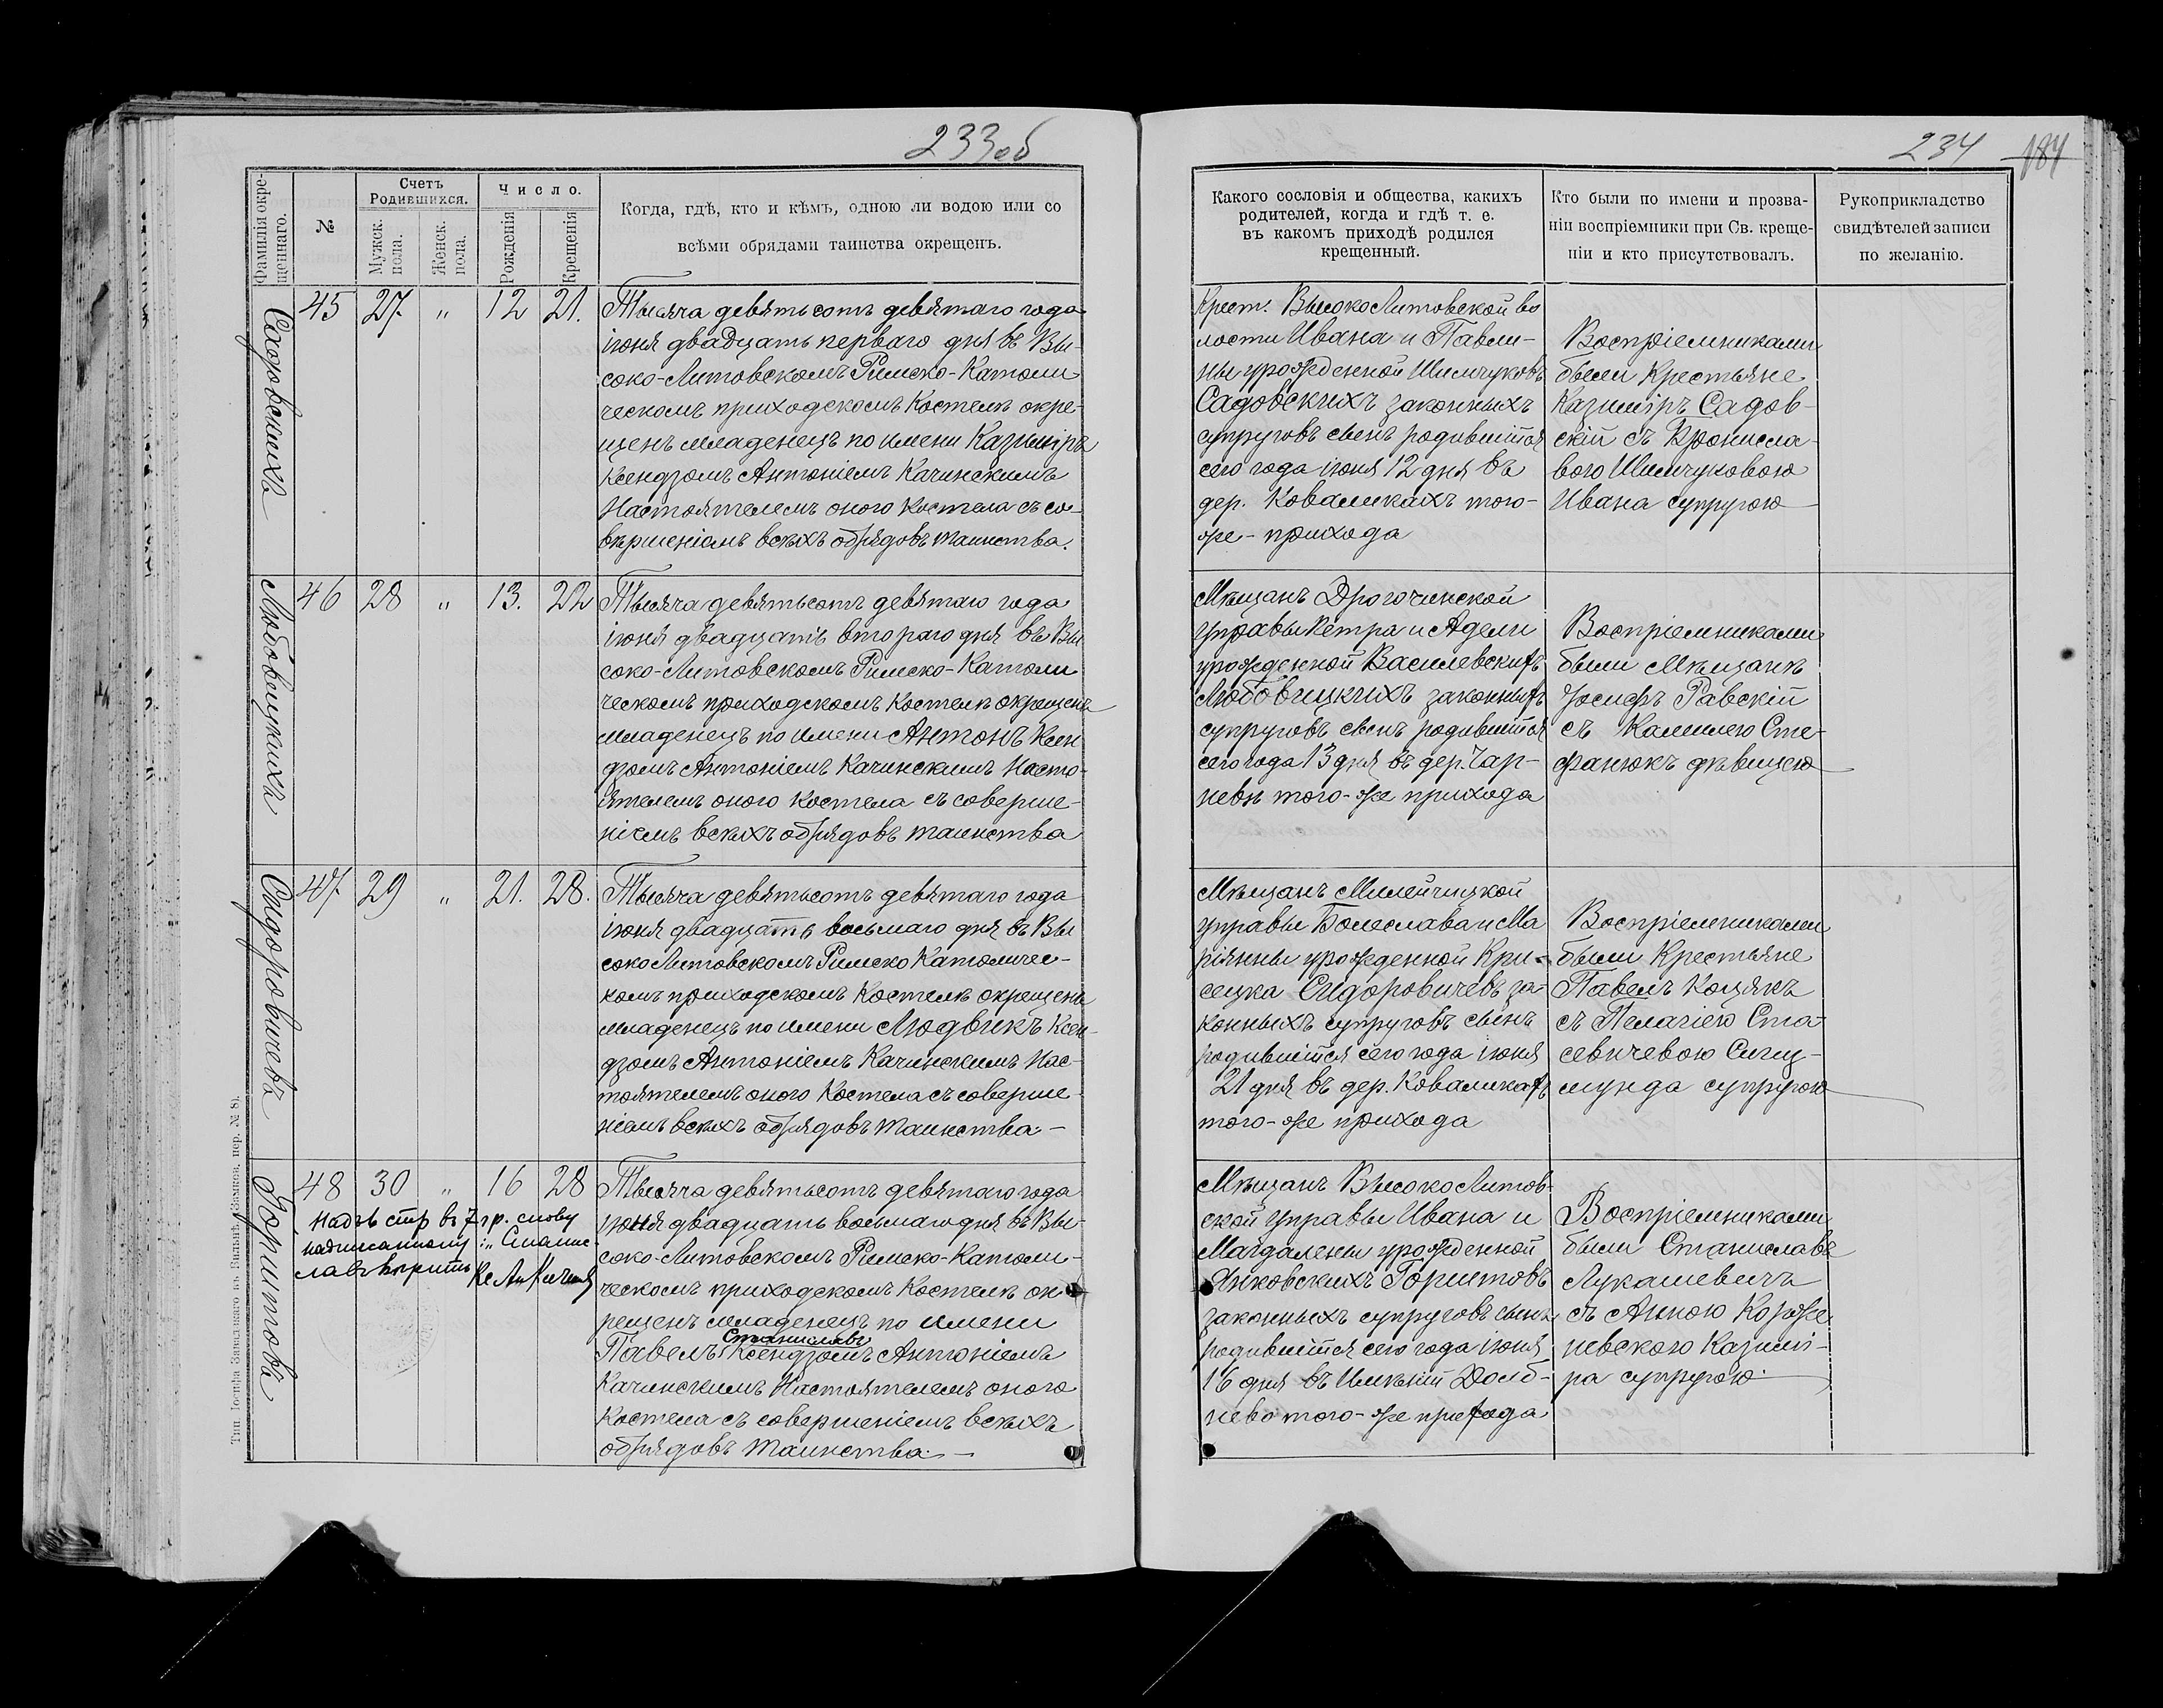 233об
Фамилія окре-
щеннаго.
№
Счетъ
Родившихся.
Мужск.
пола.
Женск.
пола.
Число.
Рожденія
Крещенія
Когда, гдѣ, кто и кѣмъ, одною ли водою или со
всѣми обрядами таинства окрещенъ.
Садовскихъ
45 27. " 12 21.
Тысяча девятьсотъ девятаго года
іюня двадцать перваго дня въ Вы-
соко-Литовскомъ Римско-Католи
ческомъ приходскомъ Костелѣ окре-
щенъ младенецъ по имени Казиміръ
Ксендзомъ Антоніемъ Качинскимъ
Настоятелемъ оного Костела съ со-
вершеніемъ всѣхъ обрядовъ таинства.
Любовицкихъ
46 28 " 13. 22
Тысяча девятьсотъ девятаго года
іюня двадцать втораго дня въ Вы
соко-Литовскомъ Римско-Католи
ческомъ приходскомъ Костелѣ окрещенъ
младенецъ по имени Антонъ Ксен
дзомъ Антоніемъ Качинскимъ Насто-
ятелемъ оного Костела съ соверше-
ніемъ всѣхъ обрядовъ таинства
Сидоровичевъ
47 29 " 21. 28.
Тысяча девятьсотъ девятаго года
іюня двадцать восьмаго дня въ Вы
соко Литовскомъ Римско Католичес-
комъ приходскомъ Костелѣ окрещенъ
младенецъ по имени Людвикъ Ксен-
дзомъ Антоніемъ Качинскимъ Нас-
тоятелемъ оного Костела съ соверше-
ніемъ всѣхъ обрядовъ таинства —
Горштовъ
48 30 " 16 28
Надъ стр въ 7 гр. слову
надписанному :„ Станис-
лавъ вѣрить
Тысяча девятьсотъ девятаго года
іюня двадцать восьмаго дня въ Вы-
соко-Литовскомъ Римско-Католи-
ческомъ приходскомъ Костелѣ ок-
рещенъ младенецъ по имени
Станиславъ
Павелъ Ксендзомъ Антоніемъ
Качинскимъ Настоятелемъ оного
Костела съ совершеніемъ всѣхъ
обрядовъ таинства. —
Тип. Іосифа Завадзкаго въ Вильнѣ, (Замков. пер. № 8).
234 184
Какого сословія и общества, какихъ
родителей, когда и гдѣ т. е.
въ какомъ приходѣ родился
крещенный.
Кто были по имени и прозва-
ніи воспріемники при Св. креще-
ніи и кто присутствовалъ.
Рукоприкладство
свидѣтелей записи
по желанію.
Крест. Высоко Литовской во
лости Ивана и Павли-
ны урожденной Шимчуковъ
Садовскихъ законныхъ
супруговъ сынъ родившійся
сего года іюня 12 дня въ
дер. Коваликахъ того-
же - прихода
Воспріемниками
были Крестьяне
Казиміръ Садов-
скій съ Бронисла-
вою Шимчуковою
Ивана супругою
Мѣщанъ Дрогочинской
Управы Петра и Адели
урожденной Василевскихъ
Любовицкихъ законныхъ
супруговъ сынъ родившійся
сего года 13 дня въ дер. Чар-
невѣ того-же прихода
Воспріемниками
были Мѣщане
Іосифъ Равскій
съ Камилею Сте-
фанюкъ дѣвицею
Мѣщанъ Милейчицкой
управы Болеслава и Ма
ріянны урожденной Кри-
сецка Сидоровичевъ за-
конныхъ супруговъ сынъ
родившійся сего года іюня
21 дня въ дер. Коваликахъ
того-же прихода
Воспріемниками
были Крестьяне
Павелъ Коцякъ
съ Пелагіею Ста-
севичевою Сигиз-
мунда супругою
Мѣщанъ Высоко Литов-
ской Управы Ивана и
Магдалены урожденной
Янковскихъ Горштовъ
законныхъ супруговъ сынъ
родившійся сего года іюня
16 дня въ Имѣніи Долб-
нево того-же прихода
Воспріемниками
были Станиславъ
Лукашевичъ
съ Анною Короже
невскою Казимі-
ра супругою.